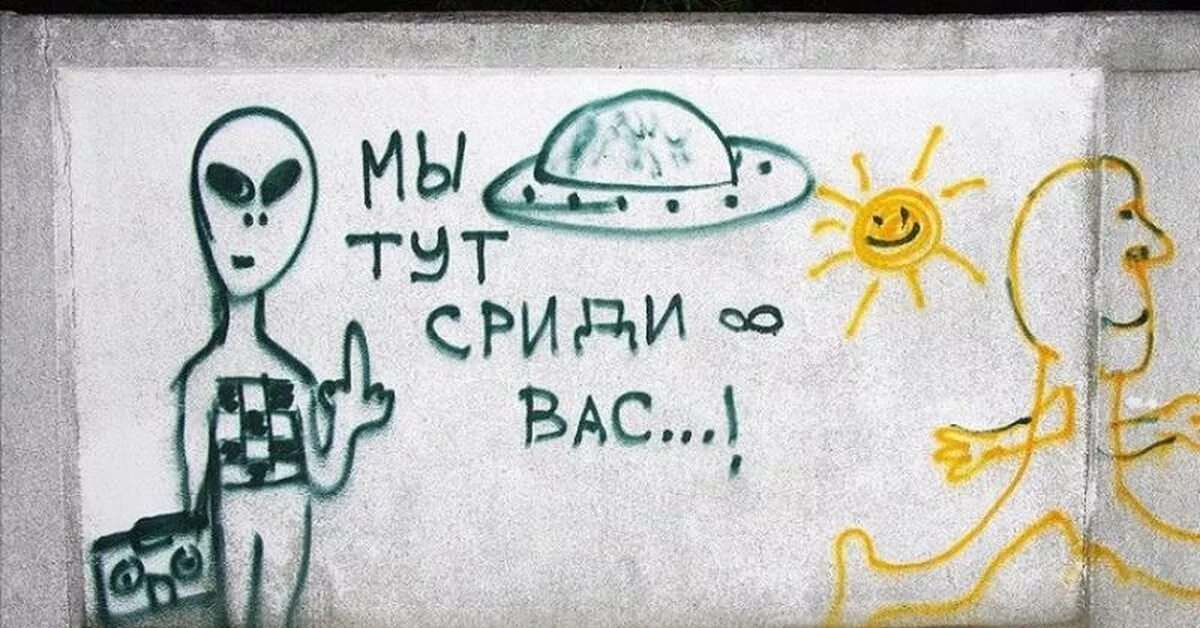 МЫ
ТУТ
СРИДИ ∞
ВАС...!